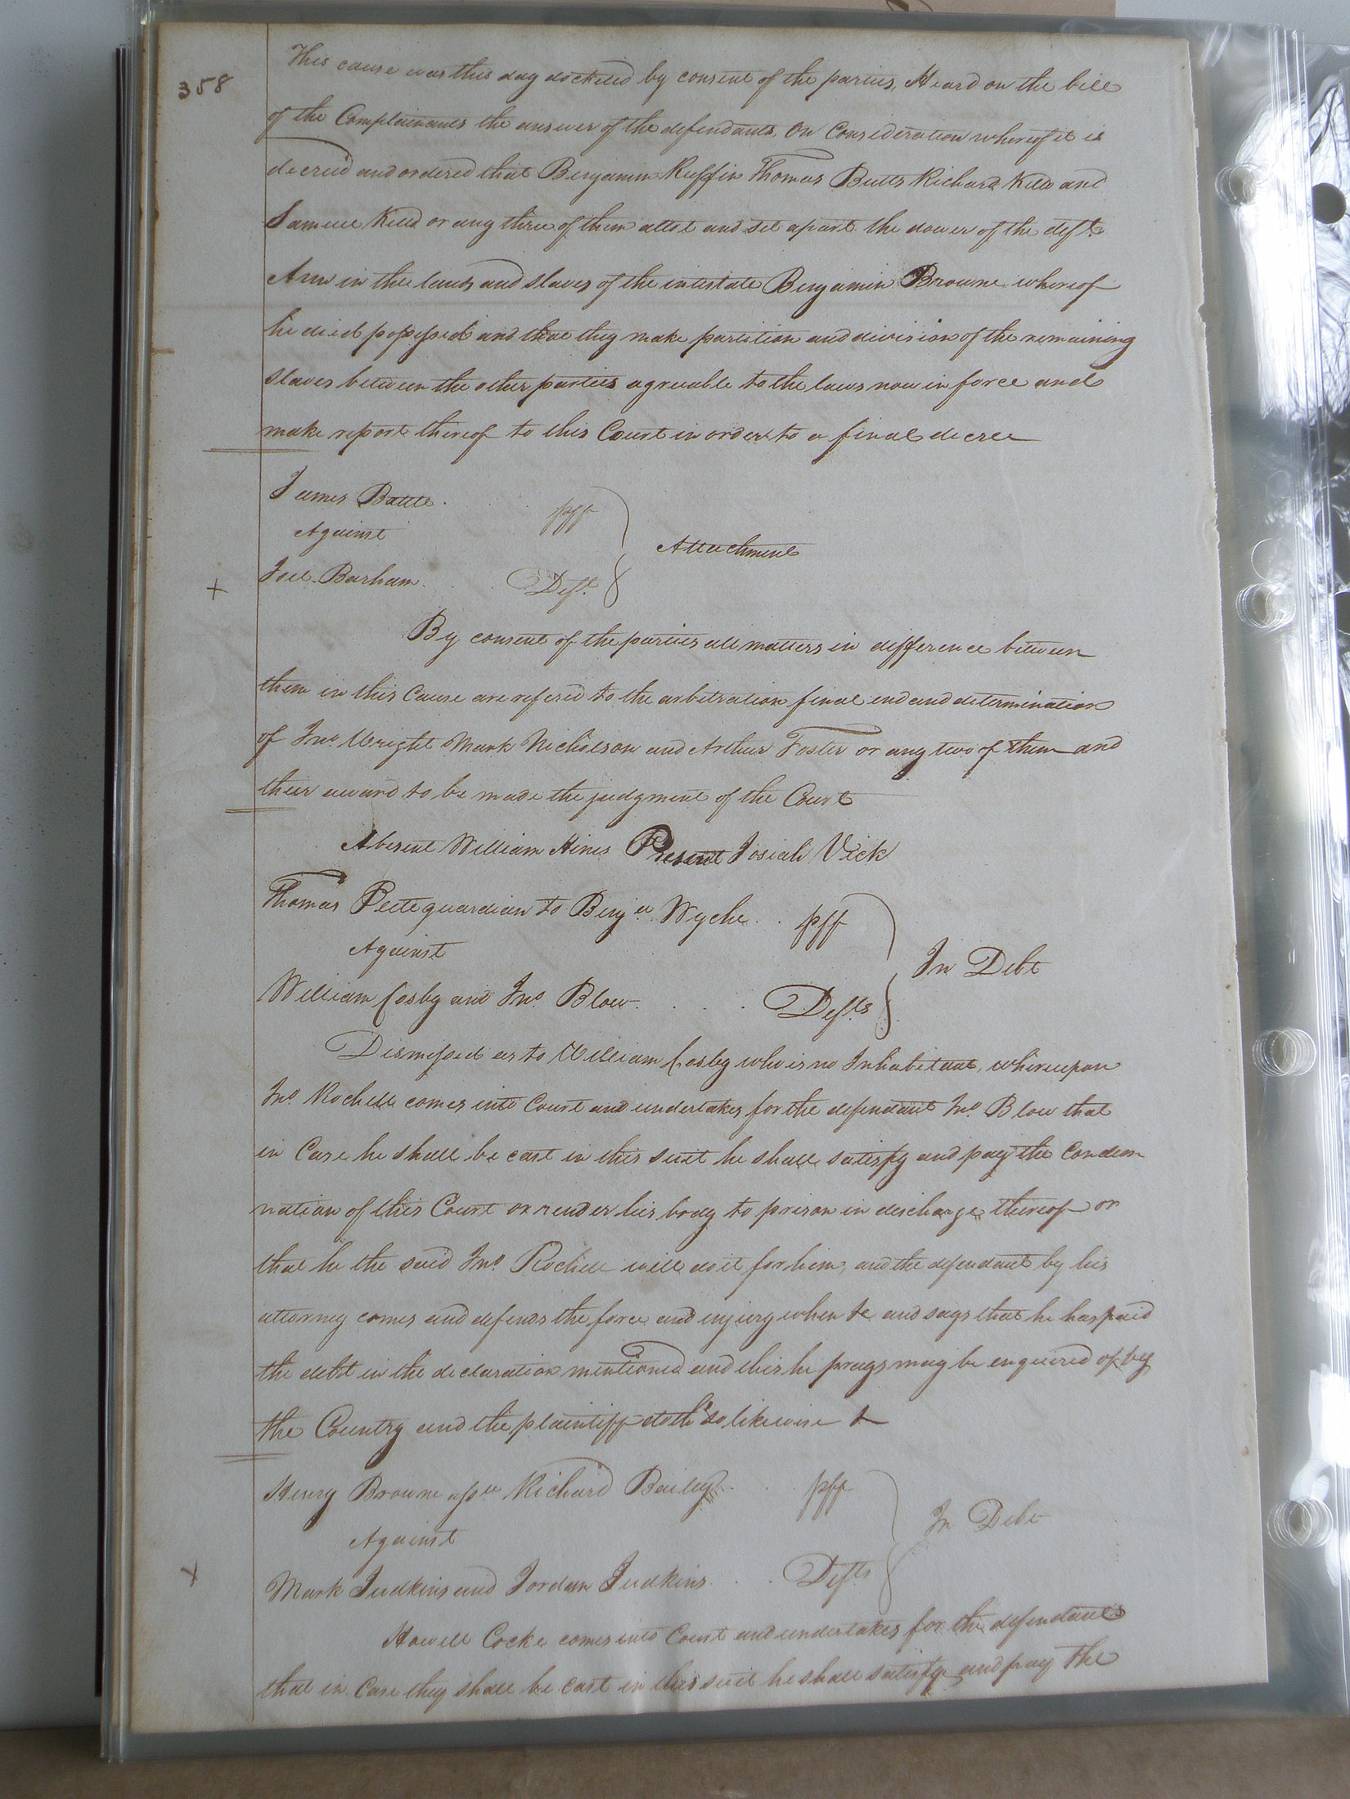 358
This cause was this day docketed by consent of the parties, Heard on the bill
of the Complainants the answer of the defendants, On Consideration whereof it is
decreed and ordered that Benjamin Ruffin Thomas Butts Richard Kello and
Samuel Kello or any three of them allot and set apart the dower of the deft.
Ann in the lands and slaves of the intestate Benjamin Browne whereof
he died possessed and that they make partition and division of the remaining
slaves between the other parties agreeable to the laws now in force and
make report thereof to this Court in order to a final decree
James Battle. plff
Against
Attachment
Joel Barham. Deft.
By consent of the parties all matters in difference between
them in this Cause are refered to the arbitration final end and determination
of Jno. Wright Mark Nicholson and Arthur Foster or any two of them and
their award to be made the judgment of the Court
Absent William Hines Present Josiah Vick
Thomas Peete guardian to Benja. Wyche. . plff
Against
In Debt
William Cosby and Jno. Blow. . . Defts
Dismissed as to William Cosby who is no Inhabitant, whereupon
Jno. Rochelle comes into Court and undertakes for the defendant Jno. Blow that
in Case he shall be cast in this suit he shall satisfy and pay the Condem
nation of this Court or render his body to prison in discharge thereof or
that he the said Jno. Rochelle will do it for him, and the defendant by his
attorney comes and defends the force and injury when &c and says that he has paid
the debt in the declaration mentioned and this he prays may be enquired of by
the Country and the plaintiff doth so likewise &
Henry Browne assee Richard Bailey. . plff
Against
In Debt
Mark Judkins and Jordan Judkins. . . Defts
Howell Cocke comes into Court and undertakes for the defendants
that in Case they shall be cast in this suit he shall satisfy and pay the